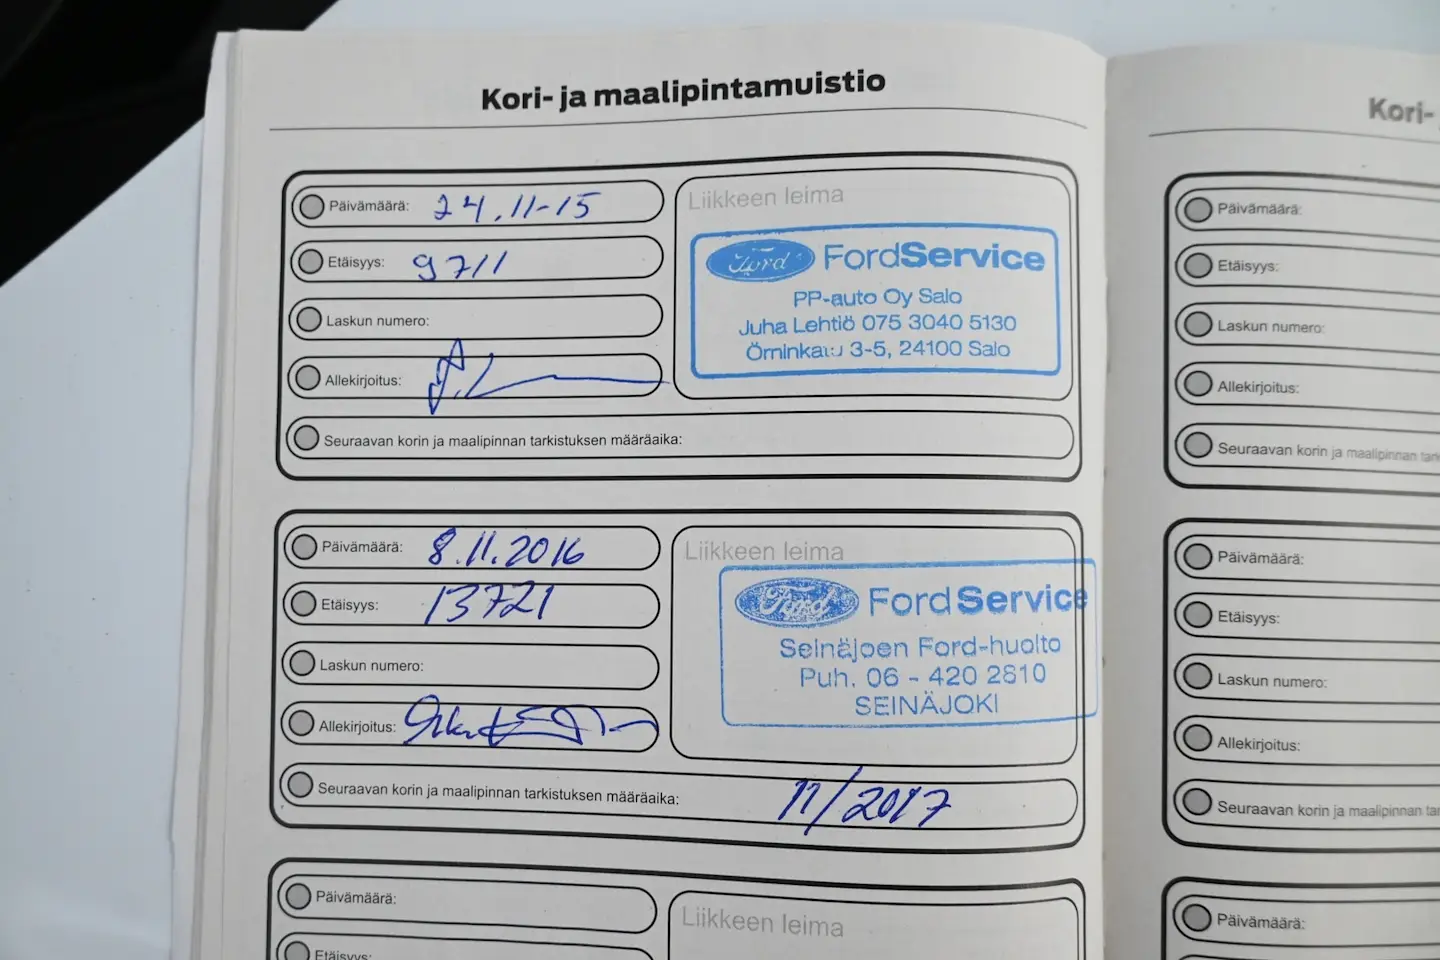 Kori- ja maalipintamuistio
Päivämäärä: 24.11-15
Etäisyys: 9711
Laskun numero:
Allekirjoitus:
Liikkeen leima
Ford FordService
PP-auto Oy Salo
Juha Lehtiö 075 3040 5130
Örninkatu 3-5, 24100 Salo
Seuraavan korin ja maalipinnan tarkistuksen määräaika:
Päivämäärä: 8.11.2016
Etäisyys: 13721
Laskun numero:
Allekirjoitus:
Liikkeen leima
Ford FordService
Seinäjoen Ford-huolto
Puh. 06 - 420 2810
SEINÄJOKI
Seuraavan korin ja maalipinnan tarkistuksen määräaika: 11/2017
Päivämäärä:
Etäisyys:
Liikkeen leima
Kori-
Päivämäärä:
Etäisyys:
Laskun numero:
Allekirjoitus:
Seuraavan korin ja maalipinnan tar
Päivämäärä:
Etäisyys:
Laskun numero:
Allekirjoitus:
Seuraavan korin ja maalipinnan tar
Päivämäärä: